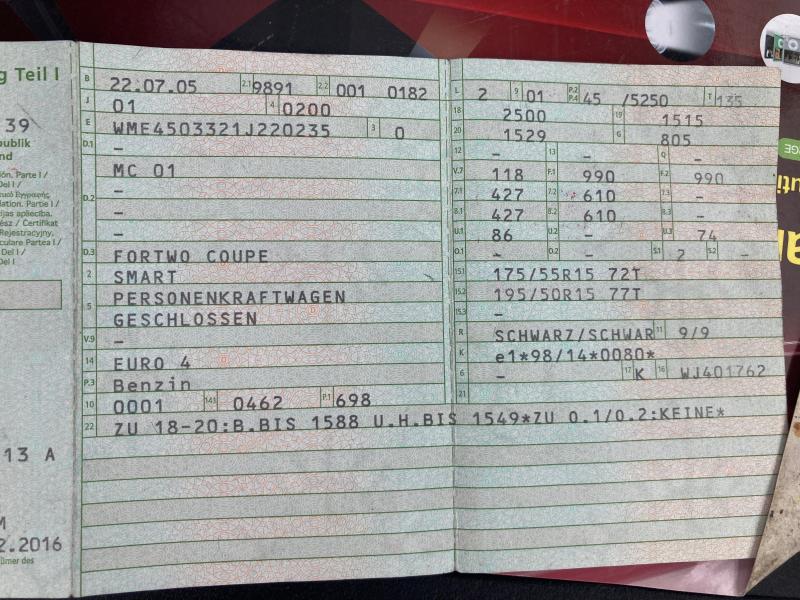 g Teil I
39
publik
nd
Parte I /
Del I /
Parte I /
zész / Certifikat
Rejestracyjny,
culare Partea I /
Del I /
Del I
13 A
M
2.2016
B 22.07.05 2.1 9891 2.2 001 0182
J 01 4 0200
E WME4503321J220235 3 0
D.1 –
MC 01
D.2 –
–
–
D.3 FORTWO COUPE
2 SMART
5 PERSONENKRAFTWAGEN
GESCHLOSSEN
V.9 –
14 EURO 4
P.3 Benzin
10 0001 14.1 0462 P.1 698
22 ZU 18-20:B.BIS 1588 U.H.BIS 1549*ZU O.1/O.2:KEINE*
L 2 9 01 P.2 P.4 45 /5250 T 135
18 2500 19 1515
20 1529 G 805
12 – 13 – Q –
V.7 118 F.1 990 F.2 990
7.1 427 7.2 610 7.3 –
8.1 427 8.2 610 8.3 –
U.1 86 U.2 – U.3 74
O.1 – O.2 – S.1 2 S.2 –
15.1 175/55R15 72T
15.2 195/50R15 77T
15.3 –
R SCHWARZ/SCHWAR 11 9/9
K e1*98/14*0080*
6 – 17 K 16 WJ401762
21